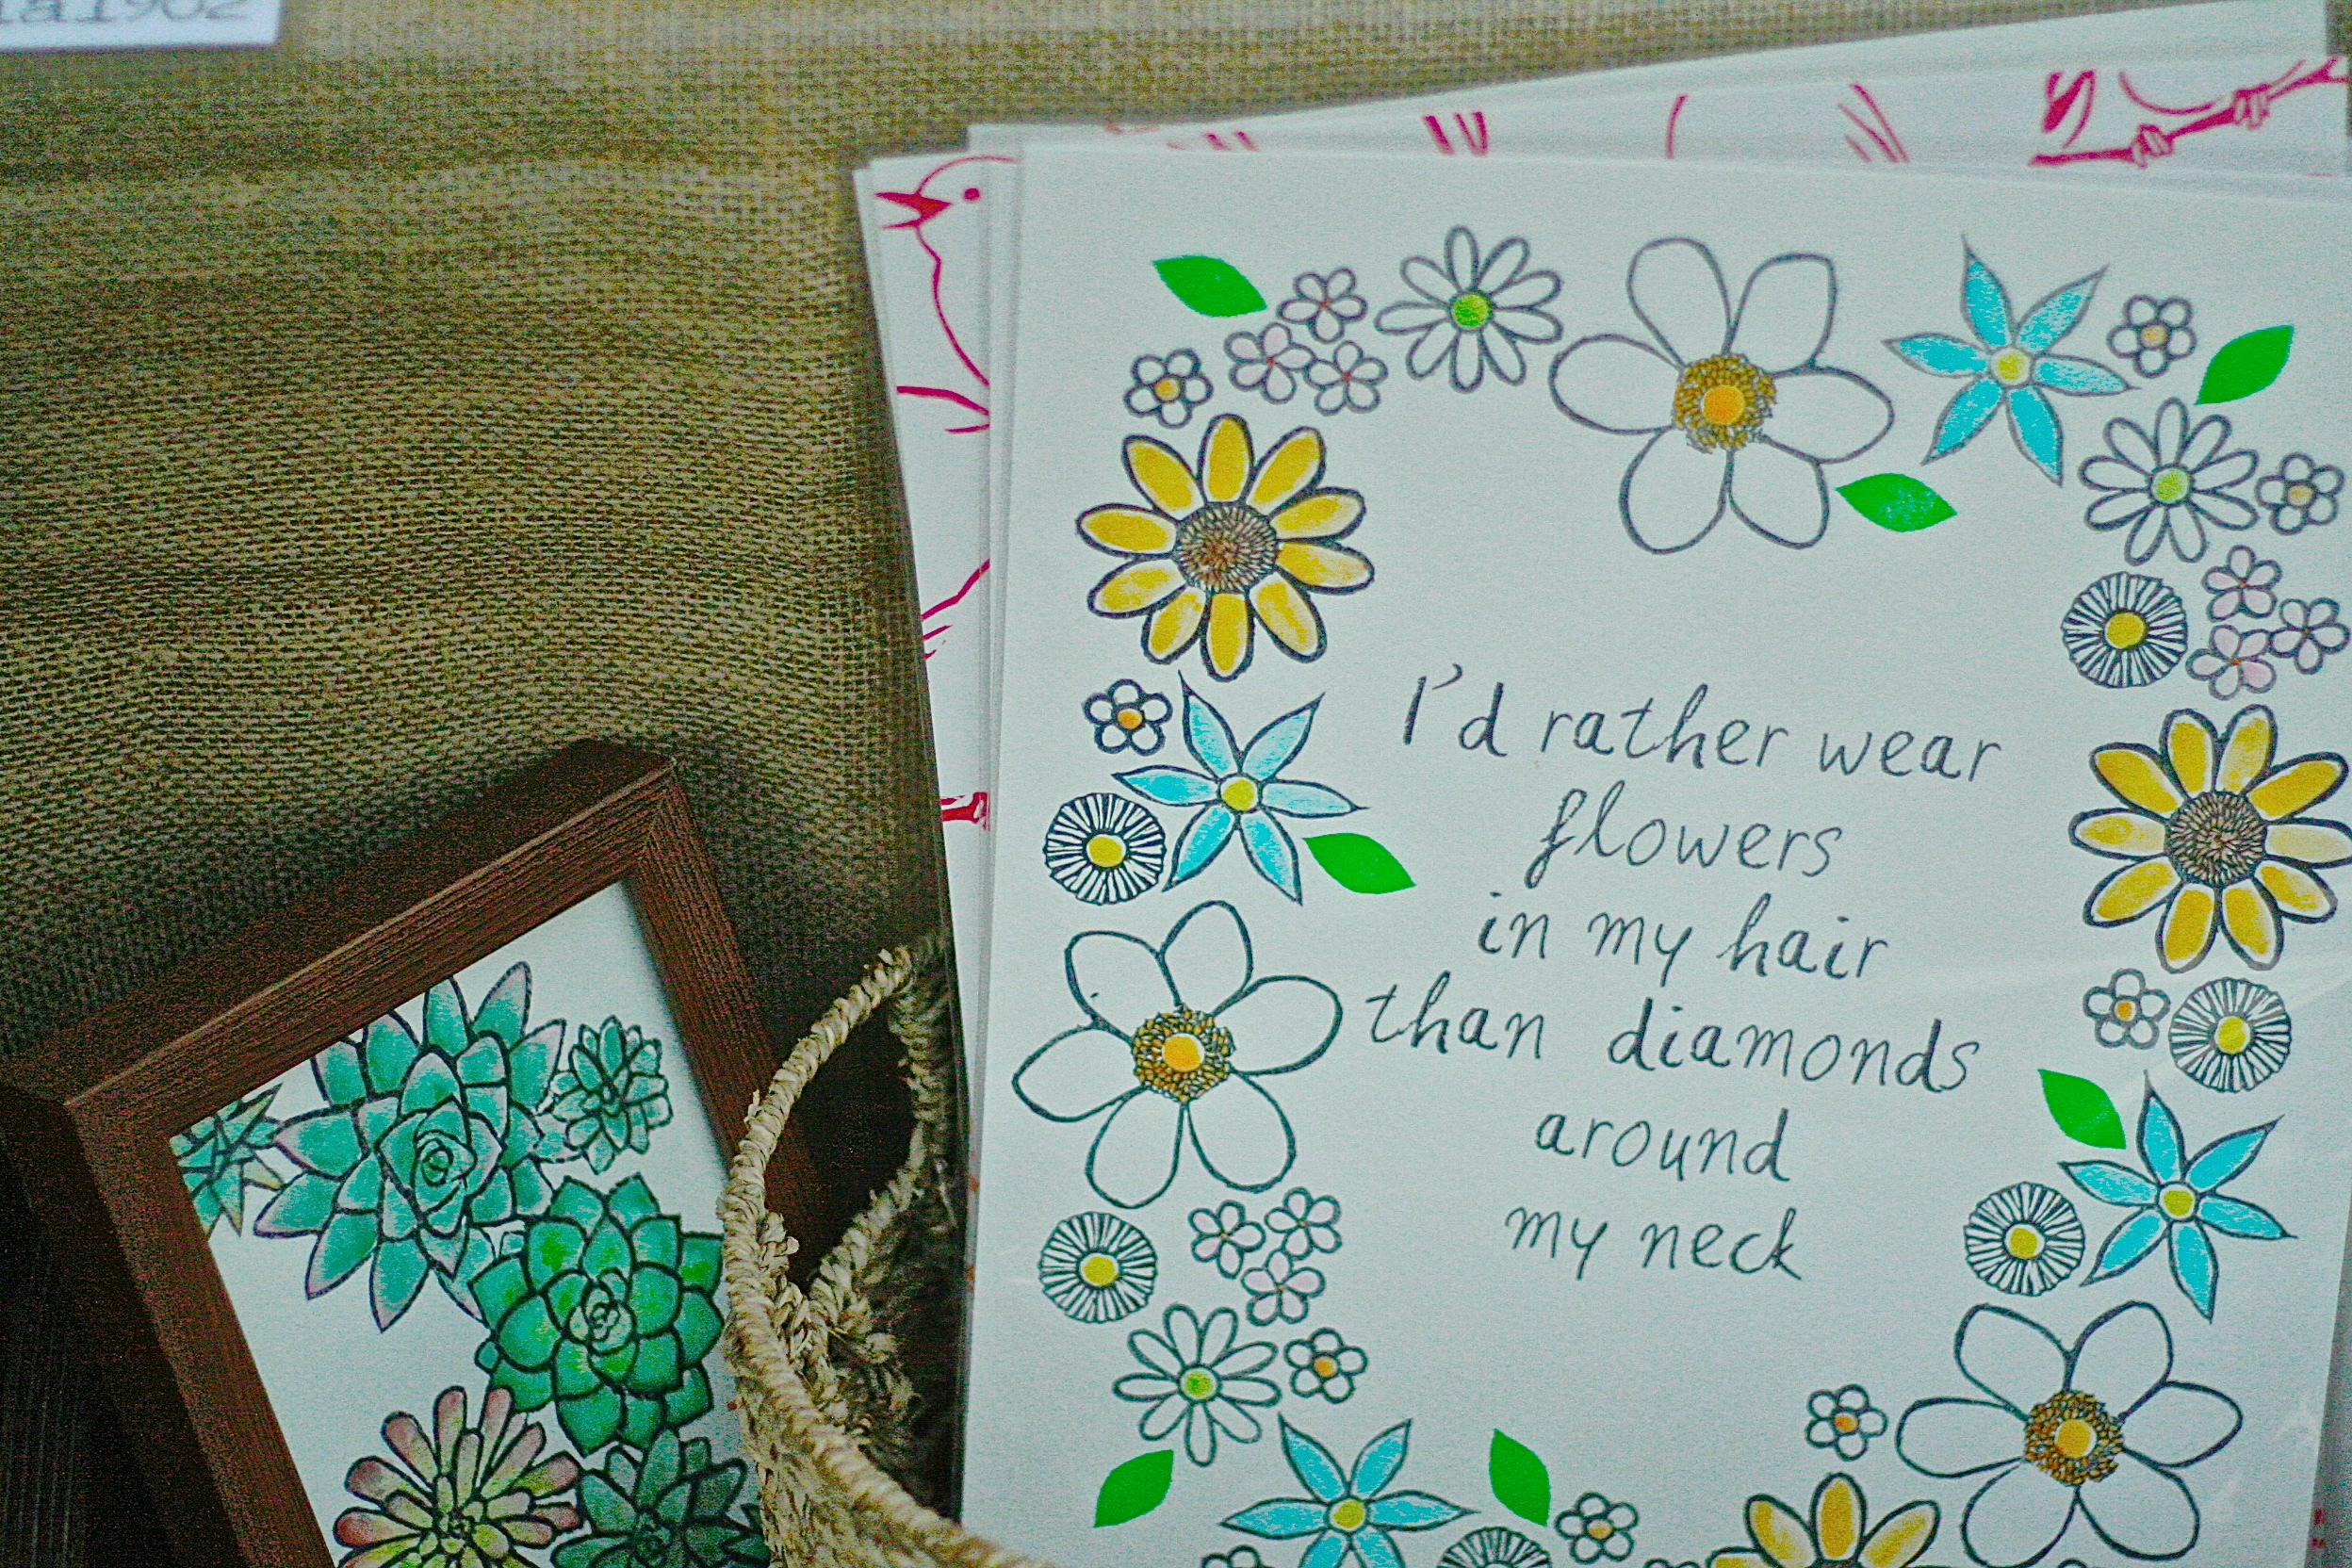 I'd rather wear
flowers
in my hair
than diamonds
around
my neck